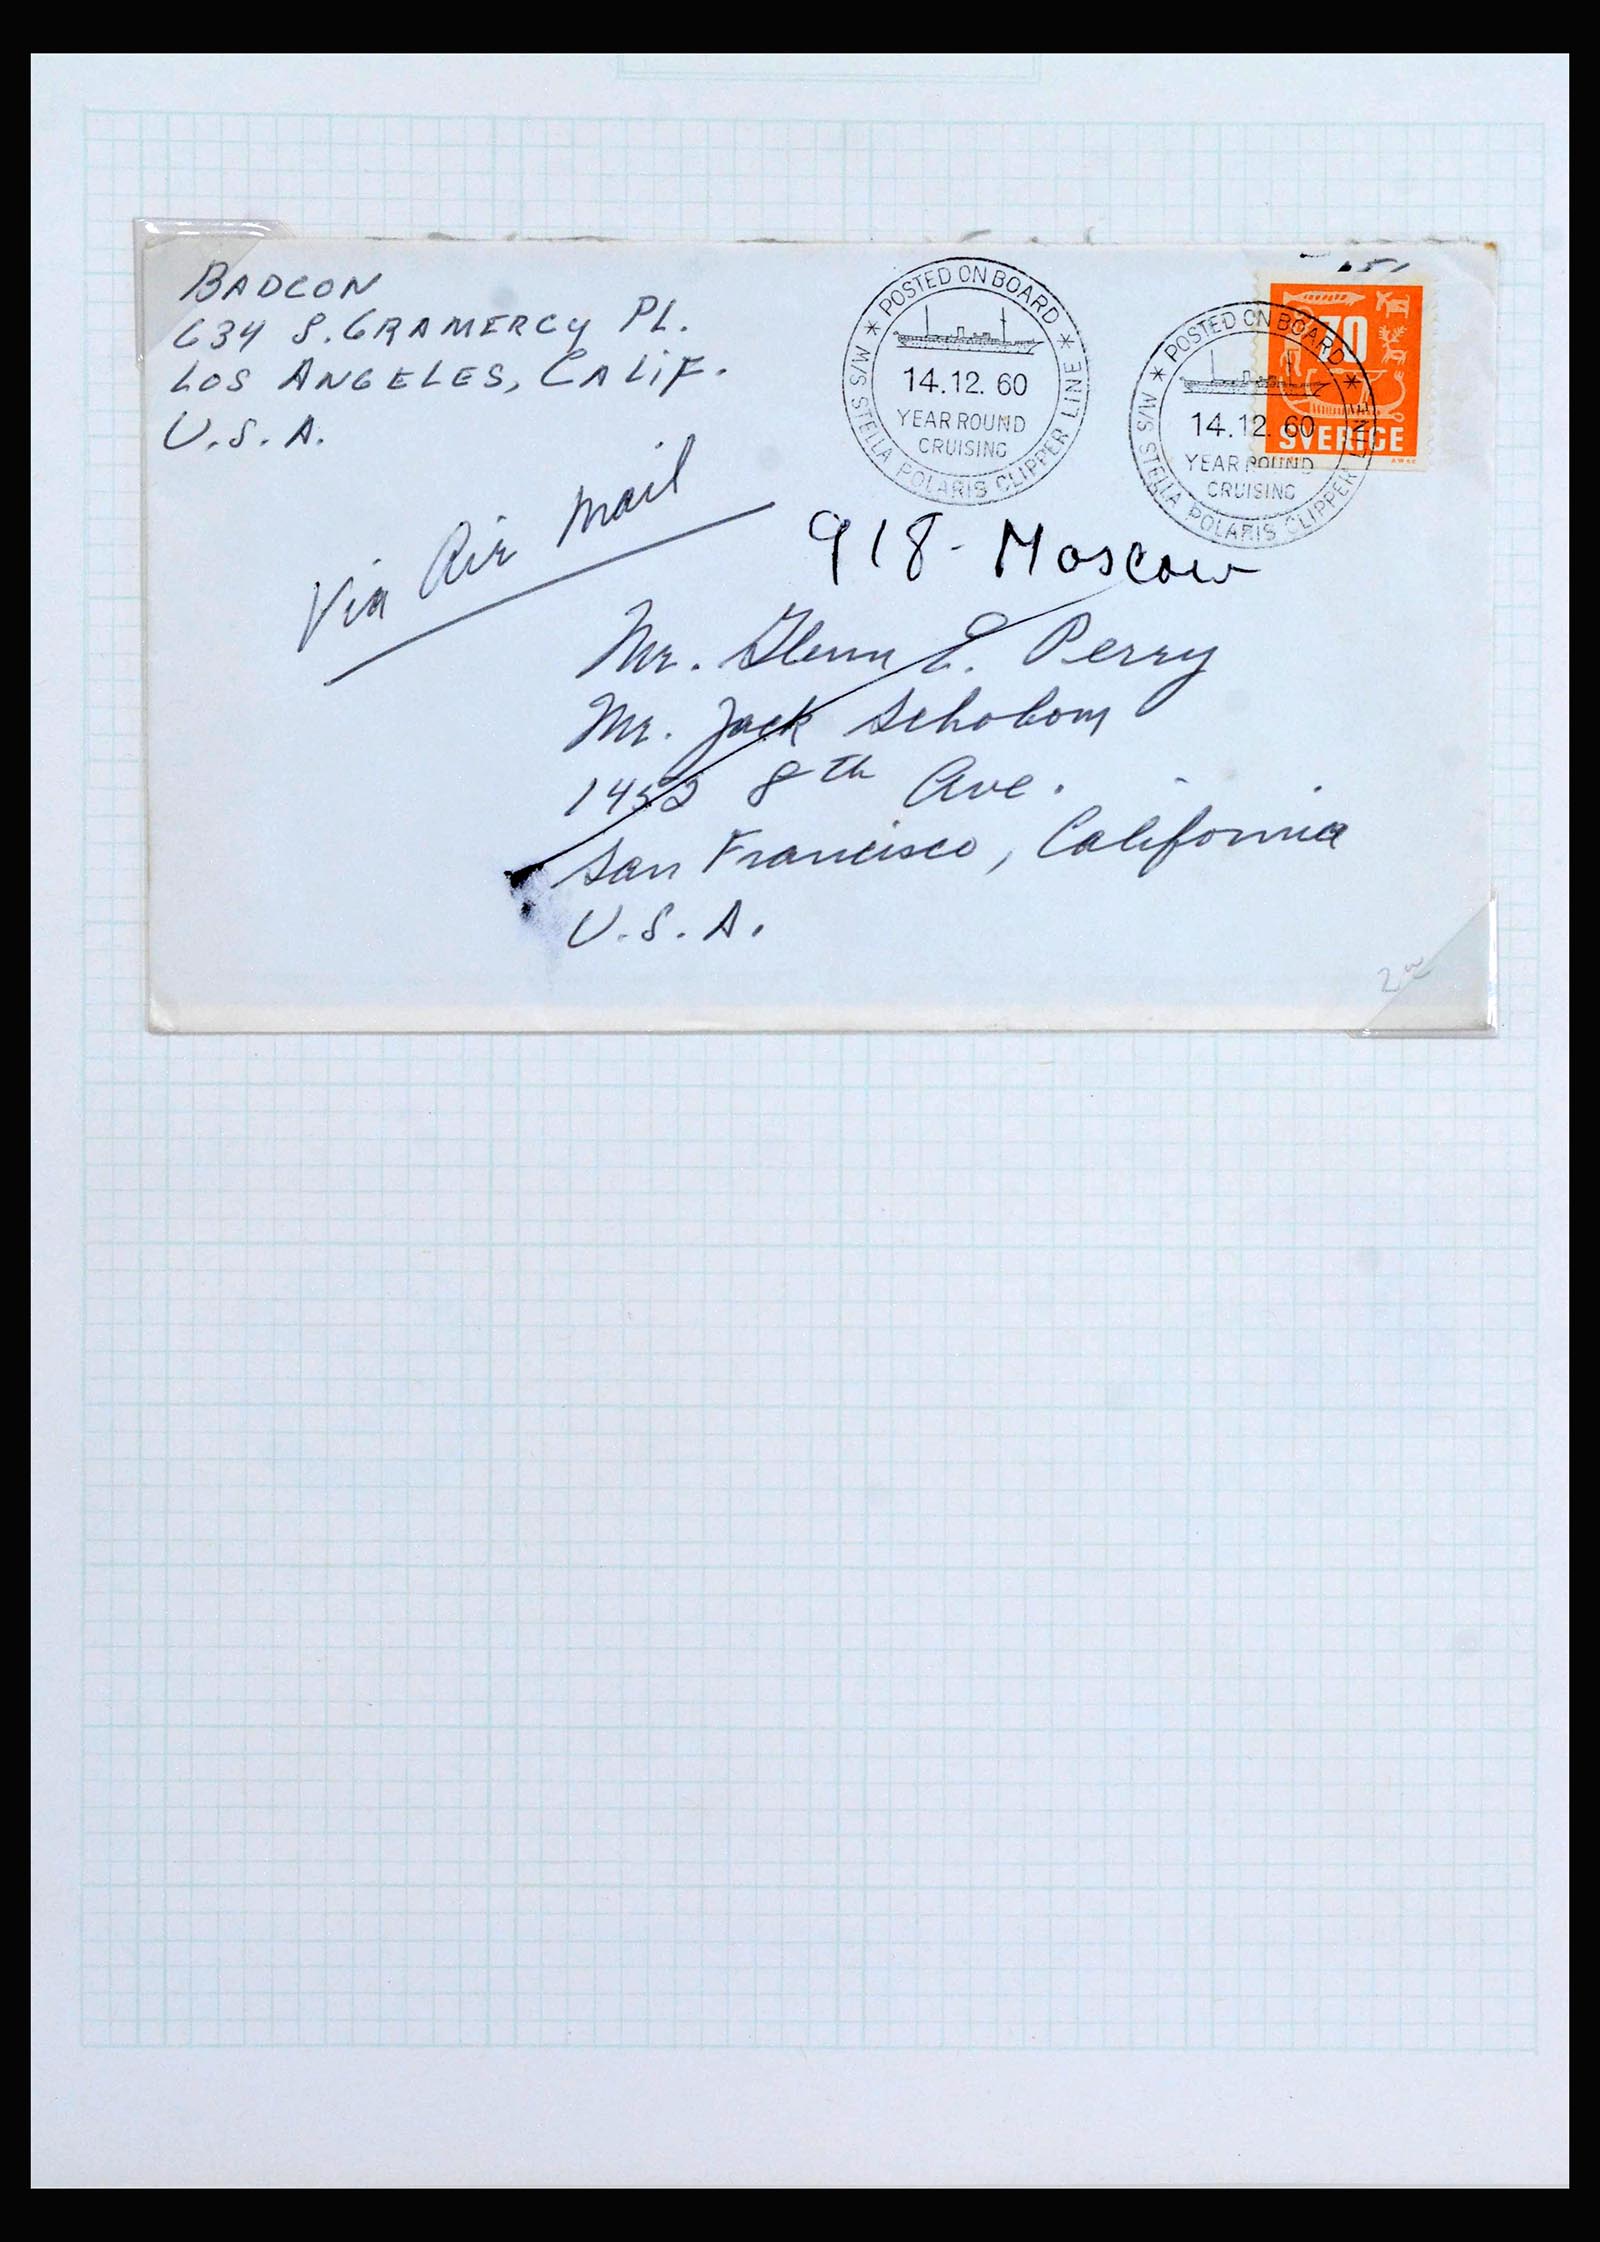 BADCON
634 S. GRAMERCY PL.
LOS ANGELES, CALIF.
U.S.A.
Via Air Mail
* POSTED ON BOARD *
M/S STELLA POLARIS CLIPPER LINE
14.12.60
YEAR ROUND
CRUISING
* POSTED ON BOARD *
M/S STELLA POLARIS CLIPPER LINE
14.12.60
YEAR ROUND
CRUISING
SVERIGE
918 - Moscow
Mr. Glenn E. Perry
Mr. Jack
1452 8th Ave.
San Francisco, California
U.S.A.